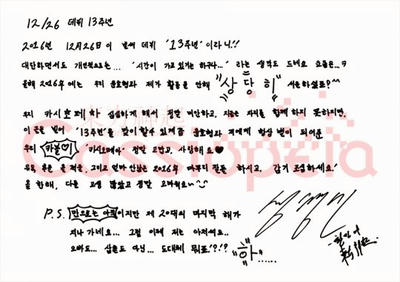 12/26 데뷔 13주년
2016년 12월 26일이 벌써 데뷔 '13주년' 이라니!!
대단하면서도 개인적으로는... '시간이 가고 있기는 하구나...' 라는 생각도 드네요 요즘은..?
올해 2016년에는 우리 윤호형과 제가 활동을 안해 상당히 서운하셨죠?^^
우리 카시오페아 심심하게 해서 정말 미안하고, 지금은 자리를 함께 하지 못하지만,
이 글을 빌어 '13주년'을 맞이할수 있게끔 윤호형과 저에게 항상 힘이 되어준
우리 카몽♡이 "카시오페아" 정말 고맙고, 사랑해요♡
우리, 좋은 꿈 꿨고, 그리고 얼마 안남은 2016년 마무리 잘들 하시고, 감기 조심하세요!
올 한해, 다들 고생 많았고 정말 고마워요~^^
P.S. 만으로는 아직이지만 제 20대의 마지막 해가
지나가네요... 그럼 이제 저는 아저씨..
오빠도... 삼촌도 아닌... 도대체 뭐죠?!?? 하......
Cassiopeia